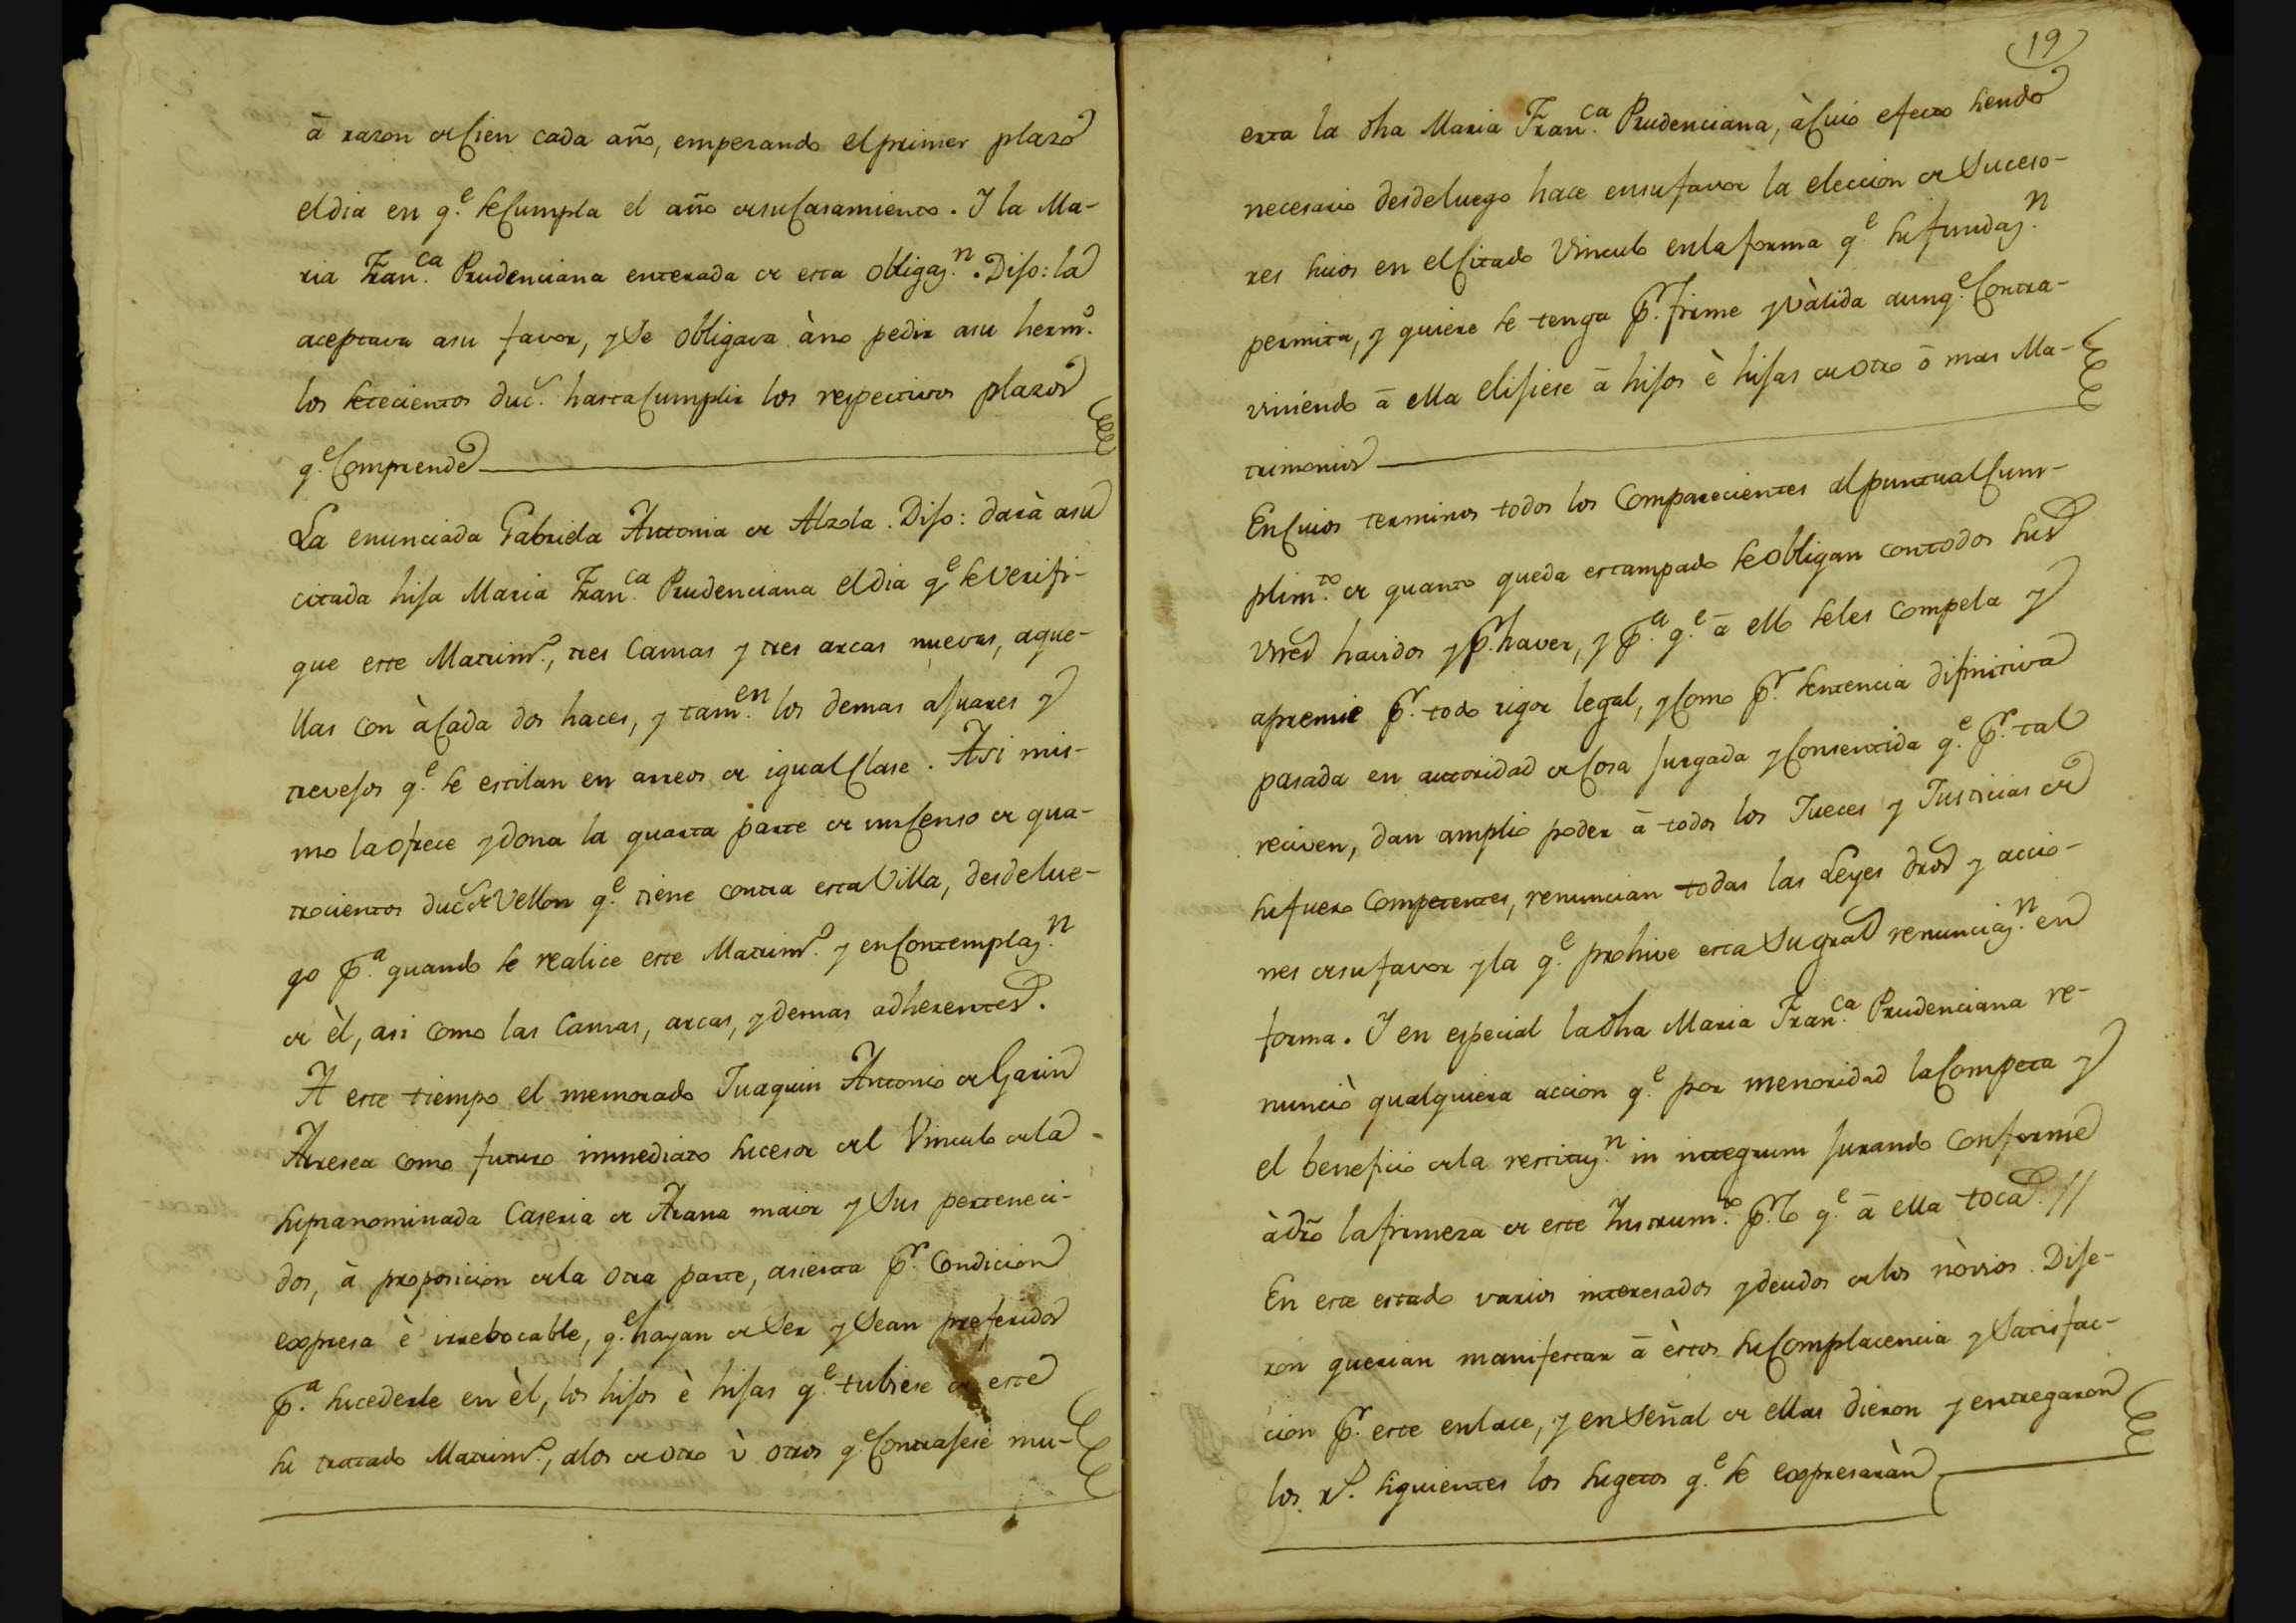 â razon de Cien cada año, empezando el primer plazo
el dia en q.e se Cumpla el año de su Casamiento. Y la Ma-
ria Fran.ca Prudenciana enterada de esta obligaz.n. Dijo: la
aceptava a su favor, y Se obligava à no pedir a su herm.o
los setecientos duc.s hasta Cumplir los respectivos plazos
q.e Comprende
La enunciada Gabriela Antonia de Alzola. Dijo: darà a su
citada hija Maria Fran.ca Prudenciana el dia q.e se verifi-
que este Matrim.o, tres Camas y tres arcas nuevas, aque-
llas con à Cada dos haces, y tam.en los demas ajuares y
trevejos q.e se estilan en arreos de igual Clase. Asi mis-
mo la ofrece y dona la quarta parte de un Censo de qua-
trocientos duc.s de Vellon q.e tiene contra esta Villa, desde lue-
go p.a quando se realice este Matrim.o y en Contemplaz.n
de èl, asi como las Camas, arcas, y demas adherentes.
A este tiempo el memorado Juaquin Antonio de Garin
Arresea como futuro inmediato sucesor del Vinculo de la
supranominada Caseria de Arana maior y Sus perteneci-
dos, à proposicion de la otra parte, asienta p.r Condicion
expresa è irrebocable, q.e hayan de Ser y Sean preferidos
p.a sucederle en èl, los hijos è hijas q.e tubiese de este
su tratado Matrim.o, alos de otro ù otros q.e Contrajese mu-
19
erta la dha Maria Fran.ca Prudenciana, à Cuio efecto siendo
necesario desde luego hace en su favor la eleccion de Suceso-
res suios en el Citado Vinculo en la forma q.e su fundaz.n
permita, y quiere se tenga p.r firme y vàlida aunq.e Contra-
viniendo â ella elijiese â hijos è hijas de otro ô mas Ma-
trimonios
En Cuios terminos todos los Comparecientes al puntual Cum-
plim.to de quanto queda estampado se obligan con todos sus
vnes havidos y p.r haver, y p.a q.e â ello se les compela y
apremie p.r todo rigor legal, y Como p.r sentencia difinitiva
pasada en autoridad de Cosa juzgada y Consentida q.e p.r tal
reciven, dan amplio poder â todos los Jueces y Justicias de
su fuero Competentes, renuncian todas las Leyes dros y accio-
nes de su favor y la q.e prohive esta Su gral renunciaz.n en
forma. Y en especial la dha Maria Fran.ca Prudenciana re-
nunciò qualquiera accion q.e por menoridad la Competa y
el beneficio de la restituz.n in integrum jurando Conforme
à dro la firmeza de este Instrum.to p.r lo q.e â ella toca. //
En este estado varios interesados y deudos de los nòvios. Dije-
ron querian manifestar â èstos su Complacencia y Satisfac-
cion p.r este enlace, y en Señal de ellas dieron y entregaron
los r.s siguientes los sugetos q.e se expresaràn